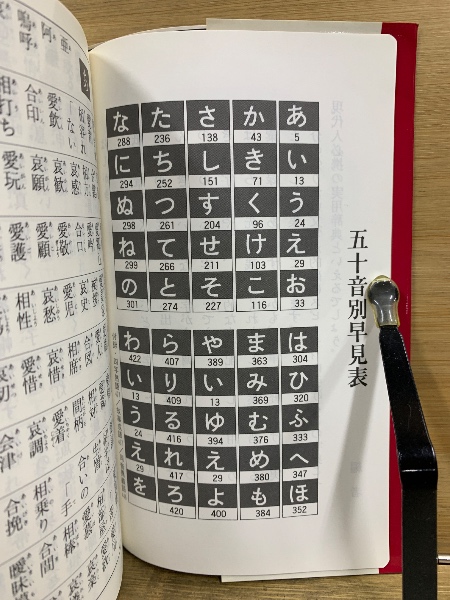 五十音別早見表
あ 5 い 13 う 24 え 29 お 33
か 43 き 71 く 96 け 103 こ 116
さ 138 し 151 す 204 せ 211 そ 227
た 236 ち 252 つ 261 て 266 と 274
な 288 に 294 ぬ 298 ね 299 の 301
は 304 ひ 320 ふ 333 へ 347 ほ 352
ま 363 み 369 む 376 め 380 も 384
や 389 い 13 ゆ 394 え 29 よ 400
ら 407 り 409 る 416 れ 417 ろ 420
わ 422 い 13 う 24 え 29 を
亜
阿
嗚呼
愛飲
合印
相打ち
哀感
哀願
愛玩
愛吟
愛敬
愛顧
愛護
哀史
愛児
哀愁
相性
合図
相席
愛惜
哀切
間柄
愛着
哀調
会津
相乗り
合挽
相棒
合間
曖昧